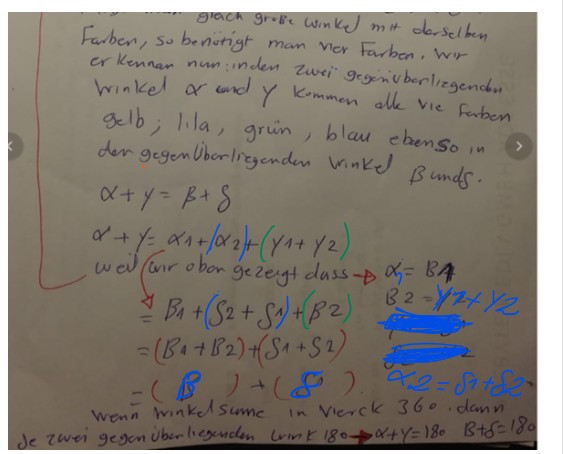 gleich große Winkel mit derselben
Farben, so benötigt man vier Farben. Wir
erkennen nun: in den zwei gegenüberliegenden
Winkel α und γ kommen alle vie Farben
gelb, lila, grün, blau ebenso in
den gegenüberliegenden Winkel β und δ.
α + γ = β + δ
α + γ = α1 + (α2) + (γ1 + γ2)
weil wir oben gezeigt dass → α1 = β1
= β1 + (δ2 + δ1) + (β2)
β2 = γ1 + γ2
= (β1 + β2) + (δ1 + δ2)
= ( β ) + ( δ )
α2 = δ1 + δ2
wenn winkelsume in Vierck 360. dann
Je zwei gegenüberliegenden wink 180 → α+γ=180 β+δ=180